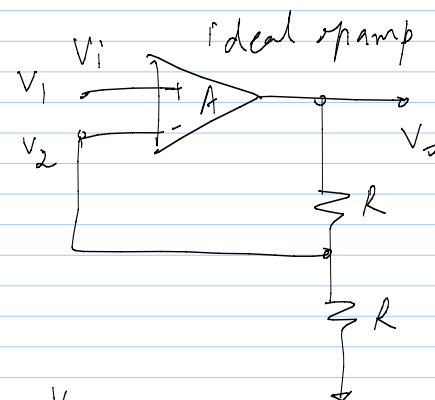 ideal opamp
Vi
V1
+
A
V2
-
R
R